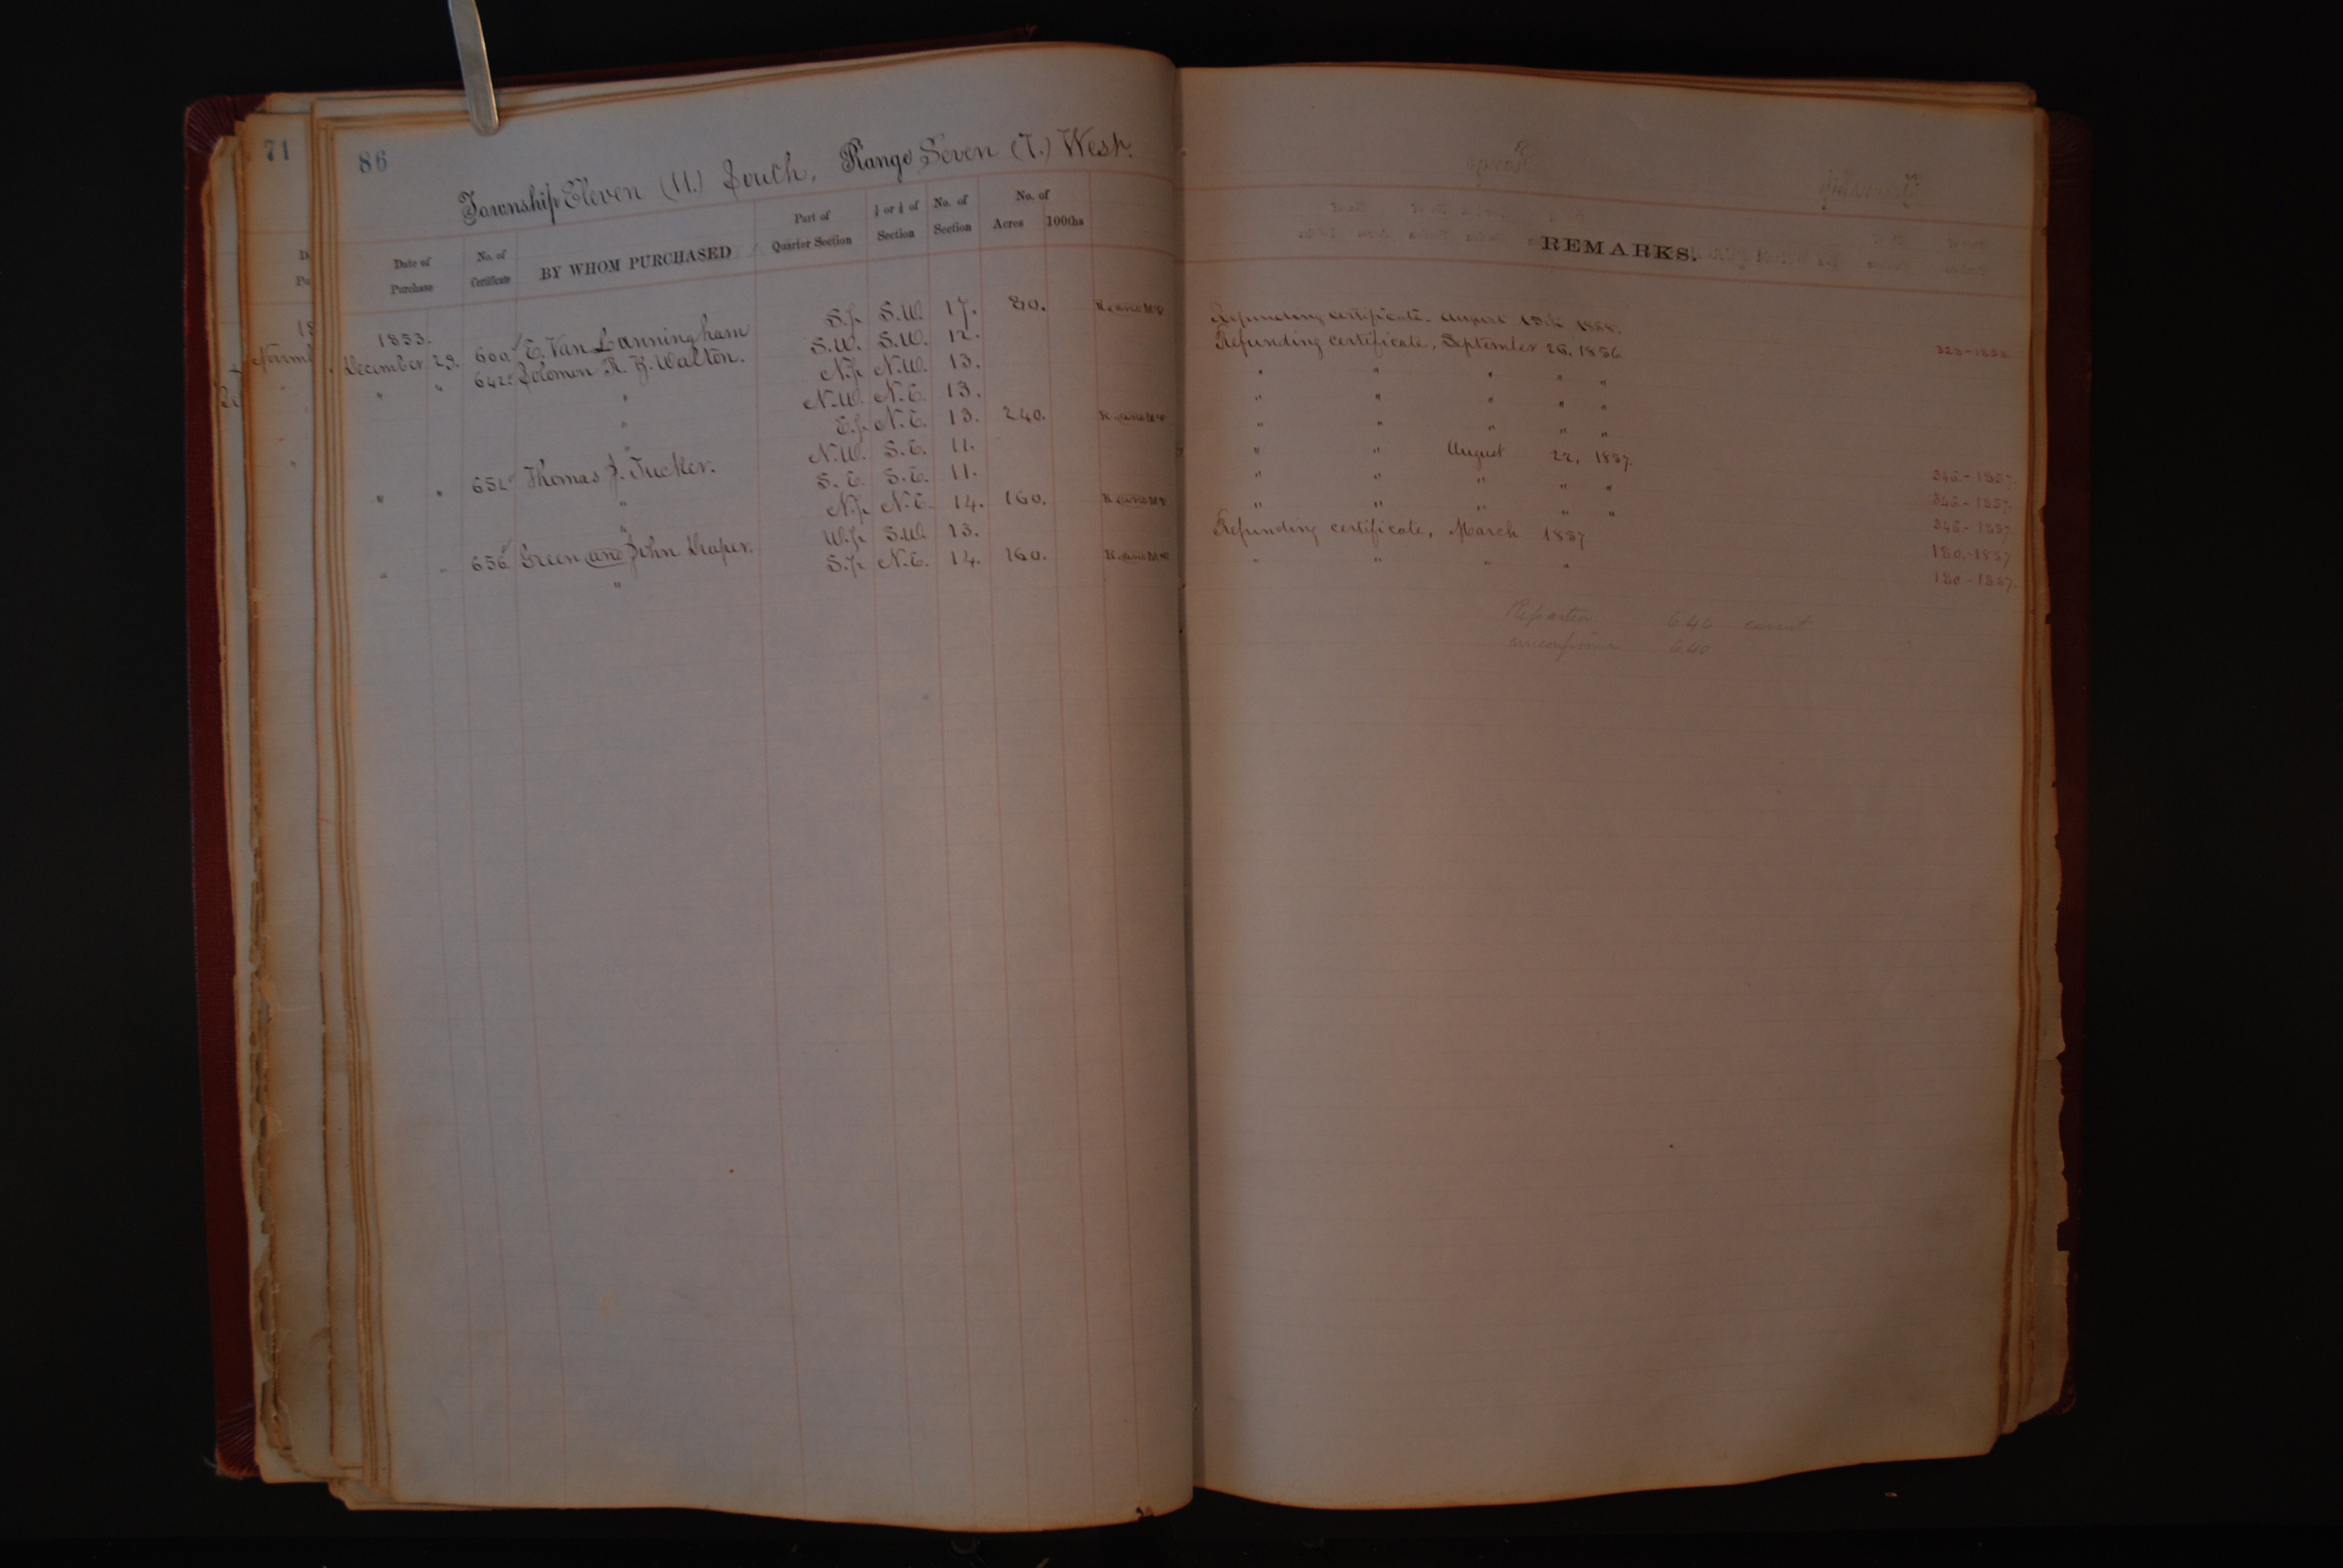 71
86
Township Eleven (11.) South, Range Seven (7.) West.
Date of Purchase No. of Certificate BY WHOM PURCHASED Part of Quarter Section ¼ or ½ of Section No. of Section No. of Acres 1000ths
REMARKS.
1853.
December 29. 600 E. Van Lanningham S.½ S.W. 17. 80. R. and M. Refunding certificate. August 1888.
" " 642 Solomon R. Walton. S.W. S.W. 12. Refunding certificate, September 26, 1856
" N.½ N.W. 13. " " " " "
" N.W. N.E. 13. " " " " "
" E.½ N.E. 13. 240. R. and M. " " " " "
" " 651 Thomas J. Tucker. N.W. S.E. 11. " " August 22, 1857. 346.-1857.
" S.E. S.E. 11. " " " " " 346-1857.
" N.½ N.E. 14. 160. R. and M. " " " " " 346-1857
" " 656 Green and John Draper. W.½ S.W. 13. Refunding certificate, March 1857 180,-1857
" S.½ N.E. 14. 160. R. and M. " " " " 180-1857.
640
640